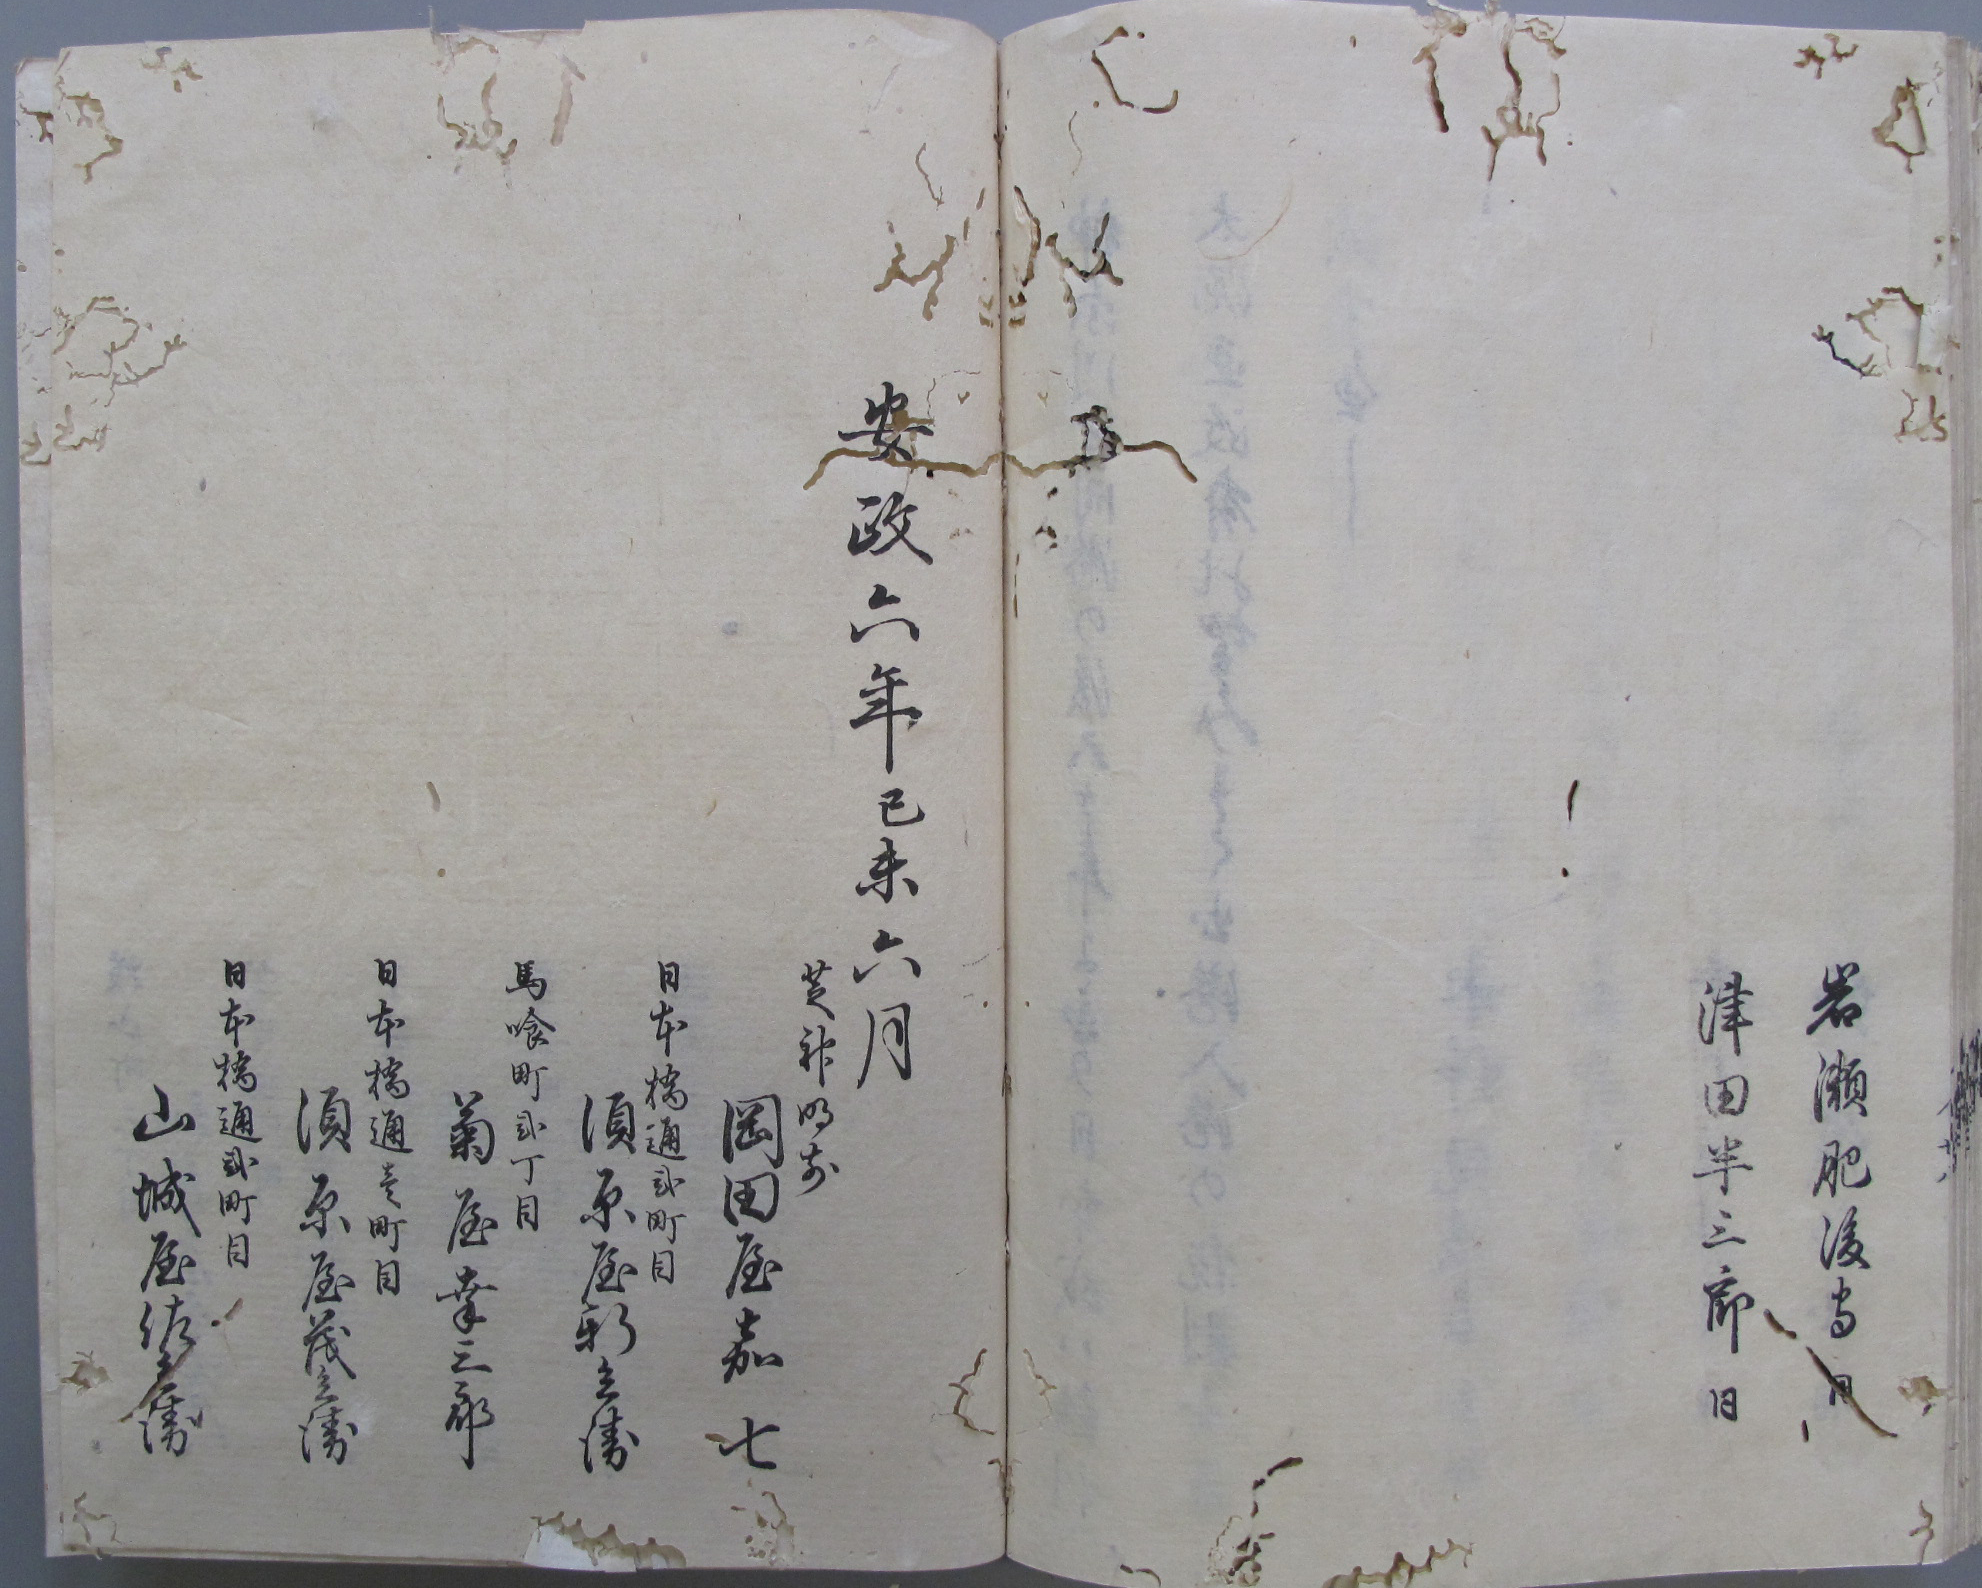 岩瀬肥後守 日
津田半三郎 日
安政六年己未六月
芝神明前
岡田屋嘉七
日本橋通弐町目
須原屋新兵衛
馬喰町弐丁目
菊屋幸三郎
日本橋通壱町目
須原屋茂兵衛
日本橋通弐町目
山城屋佐兵衛